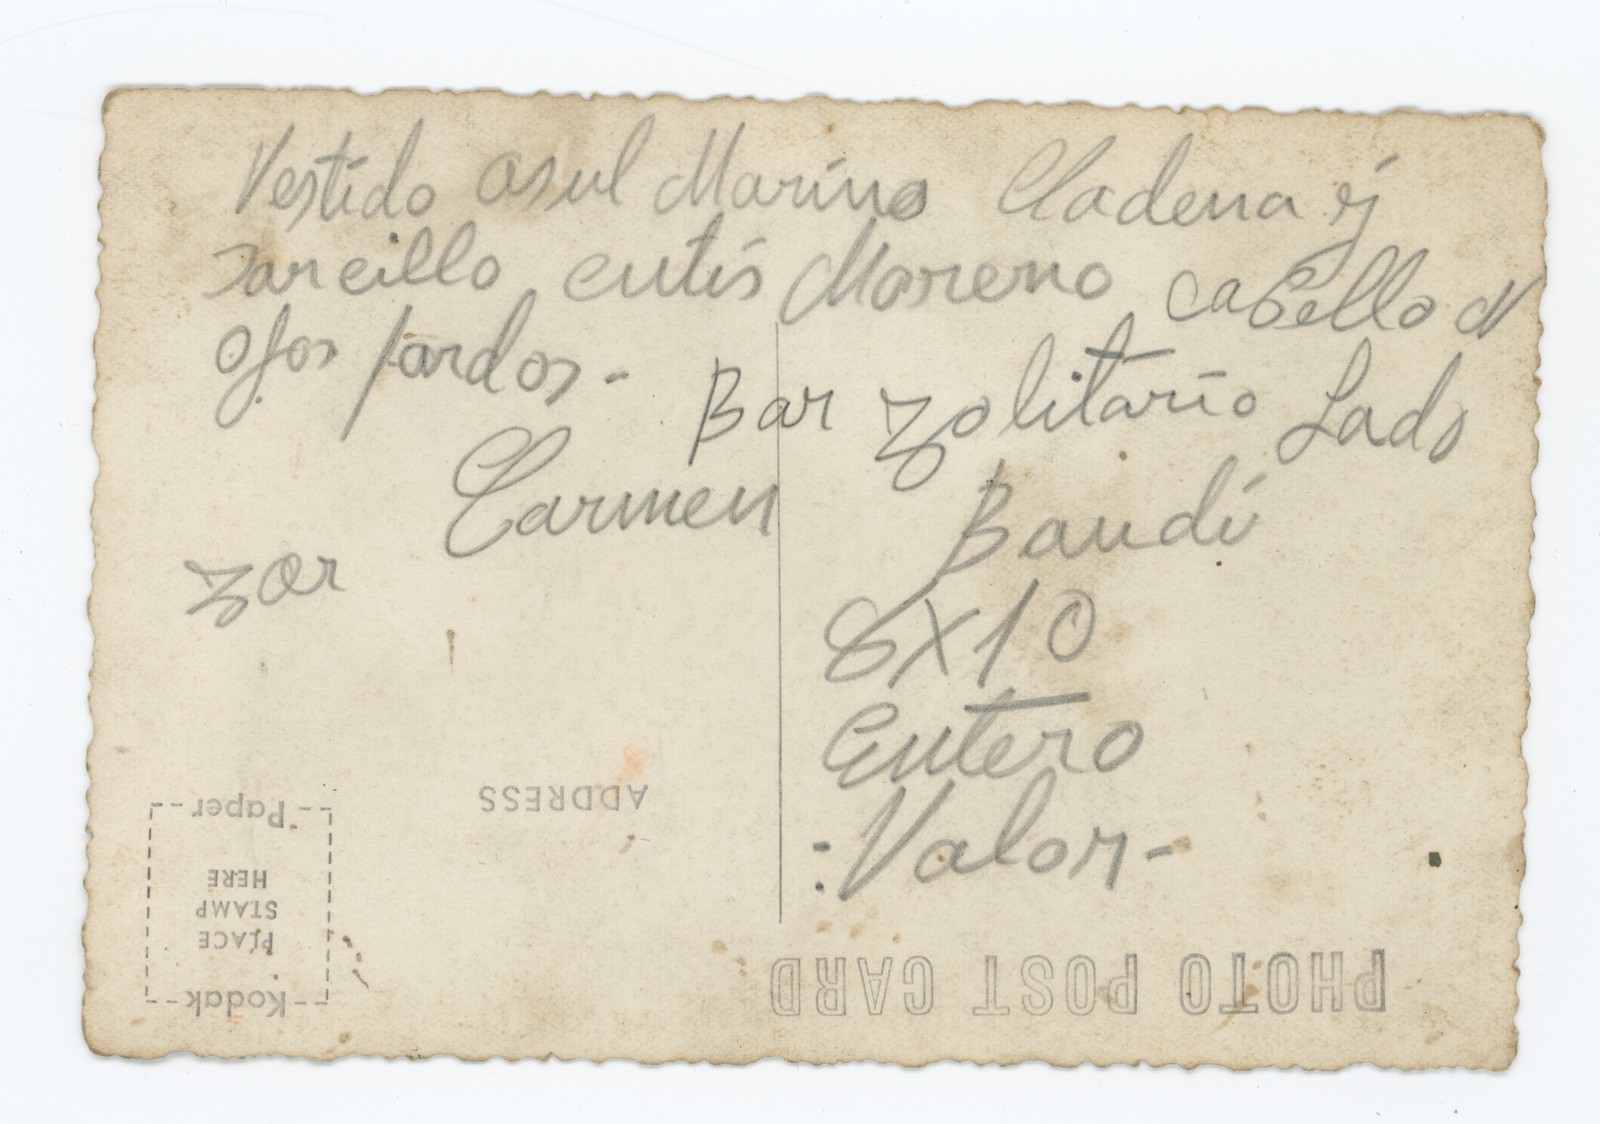 Vestido asul Marino Cladena y
Zarcillo cutis Moreno cabello N
Ojos pardos -
Bar zolitario Lado
Carmen
Baudi
zor
8X10
Entero
:Valor-
ADDRESS
Paper
HERE
STAMP
PLACE
Kodak
PHOTO POST CARD